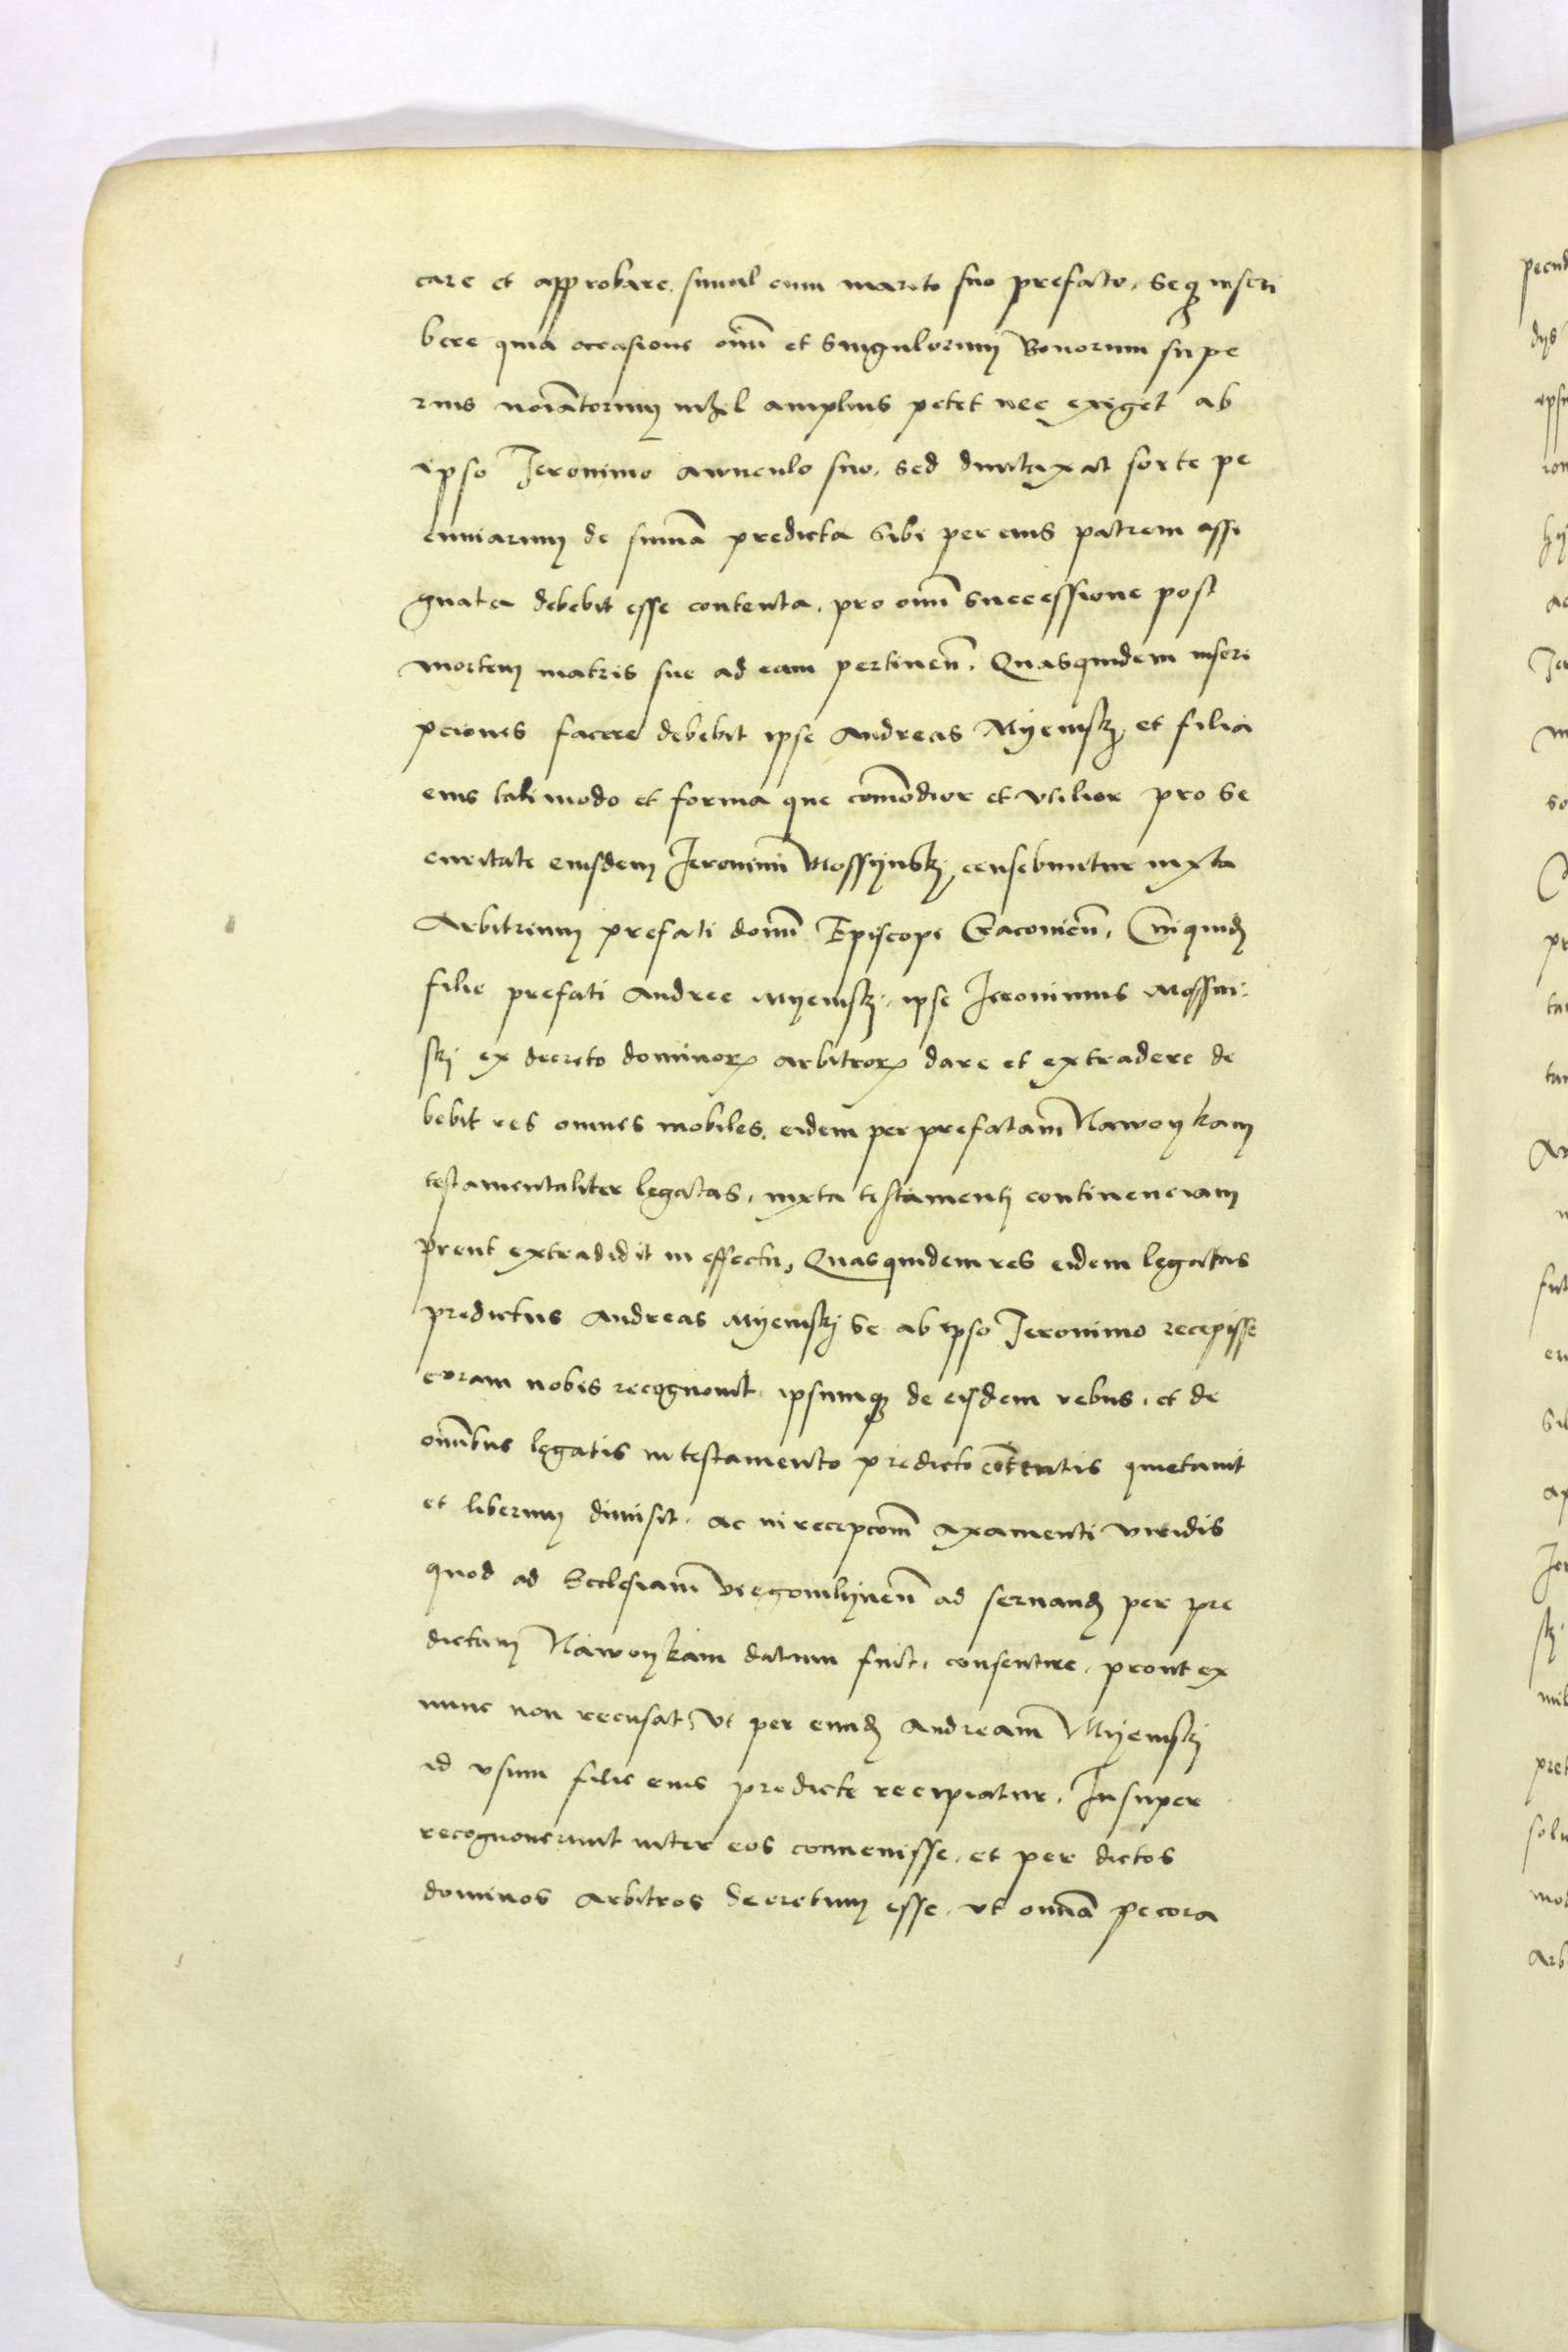 care et approbare. simul cum marito suo prefato. seq3 inscri
bere quia occasione oīm et singulorum Bonorum supe
rius noīatorum nihil amplius petet nec exiget ab
ipso Jeronimo awunculo suo. sed duntaxat sorte pe
cuniarum de suma predicta sibi per eius patrem assi
gnata debebit esse contenta. pro omī successione post
mortem matris sue ad eam pertineñ. Quasquidem inscri
pciones facere debebit ipse Andreas Myemskj et filia
eius tali modo et forma que comodior et vtilior pro se
curitate eiusdem Jeronimi Mossijnskj censebuntur iuxta
Arbitrium prefati domī Episcopi Cracovieñ. Cuiquid
filie prefati Andree Myemskj. ipse Jeronimus Mossin:
skj ex decreto dominor arbitror dare et extradere de
bebit res omnes mobiles. eidem per prefatam Nawoykam
testamentaliter legatas. iuxta testamentj continenciam
prout extradidit in effectu. Quasquidem res eidem legatas
predictus Andreas Myemskj se ab ipso Jeronimo recepisse
coram nobis recognouit. ipsumq3 de eisdem rebus. et de
omībus legatis in testamento predicto cōtentis quietauit
et liberum dimisit. ac in recepcoem axamenti viridis
quod ad Ecclesiam ad seruand per pre
dictam Nawoykam datum fuit. consentire. prout ex
nunc non recusat. vt per eund Andream Myemskj
ad vsum filie eius predicte recipiatur. Insuper
recognouerunt inter eos conuenisse. et per dictos
dominos Arbitros decretum esse. vt omīa pecora